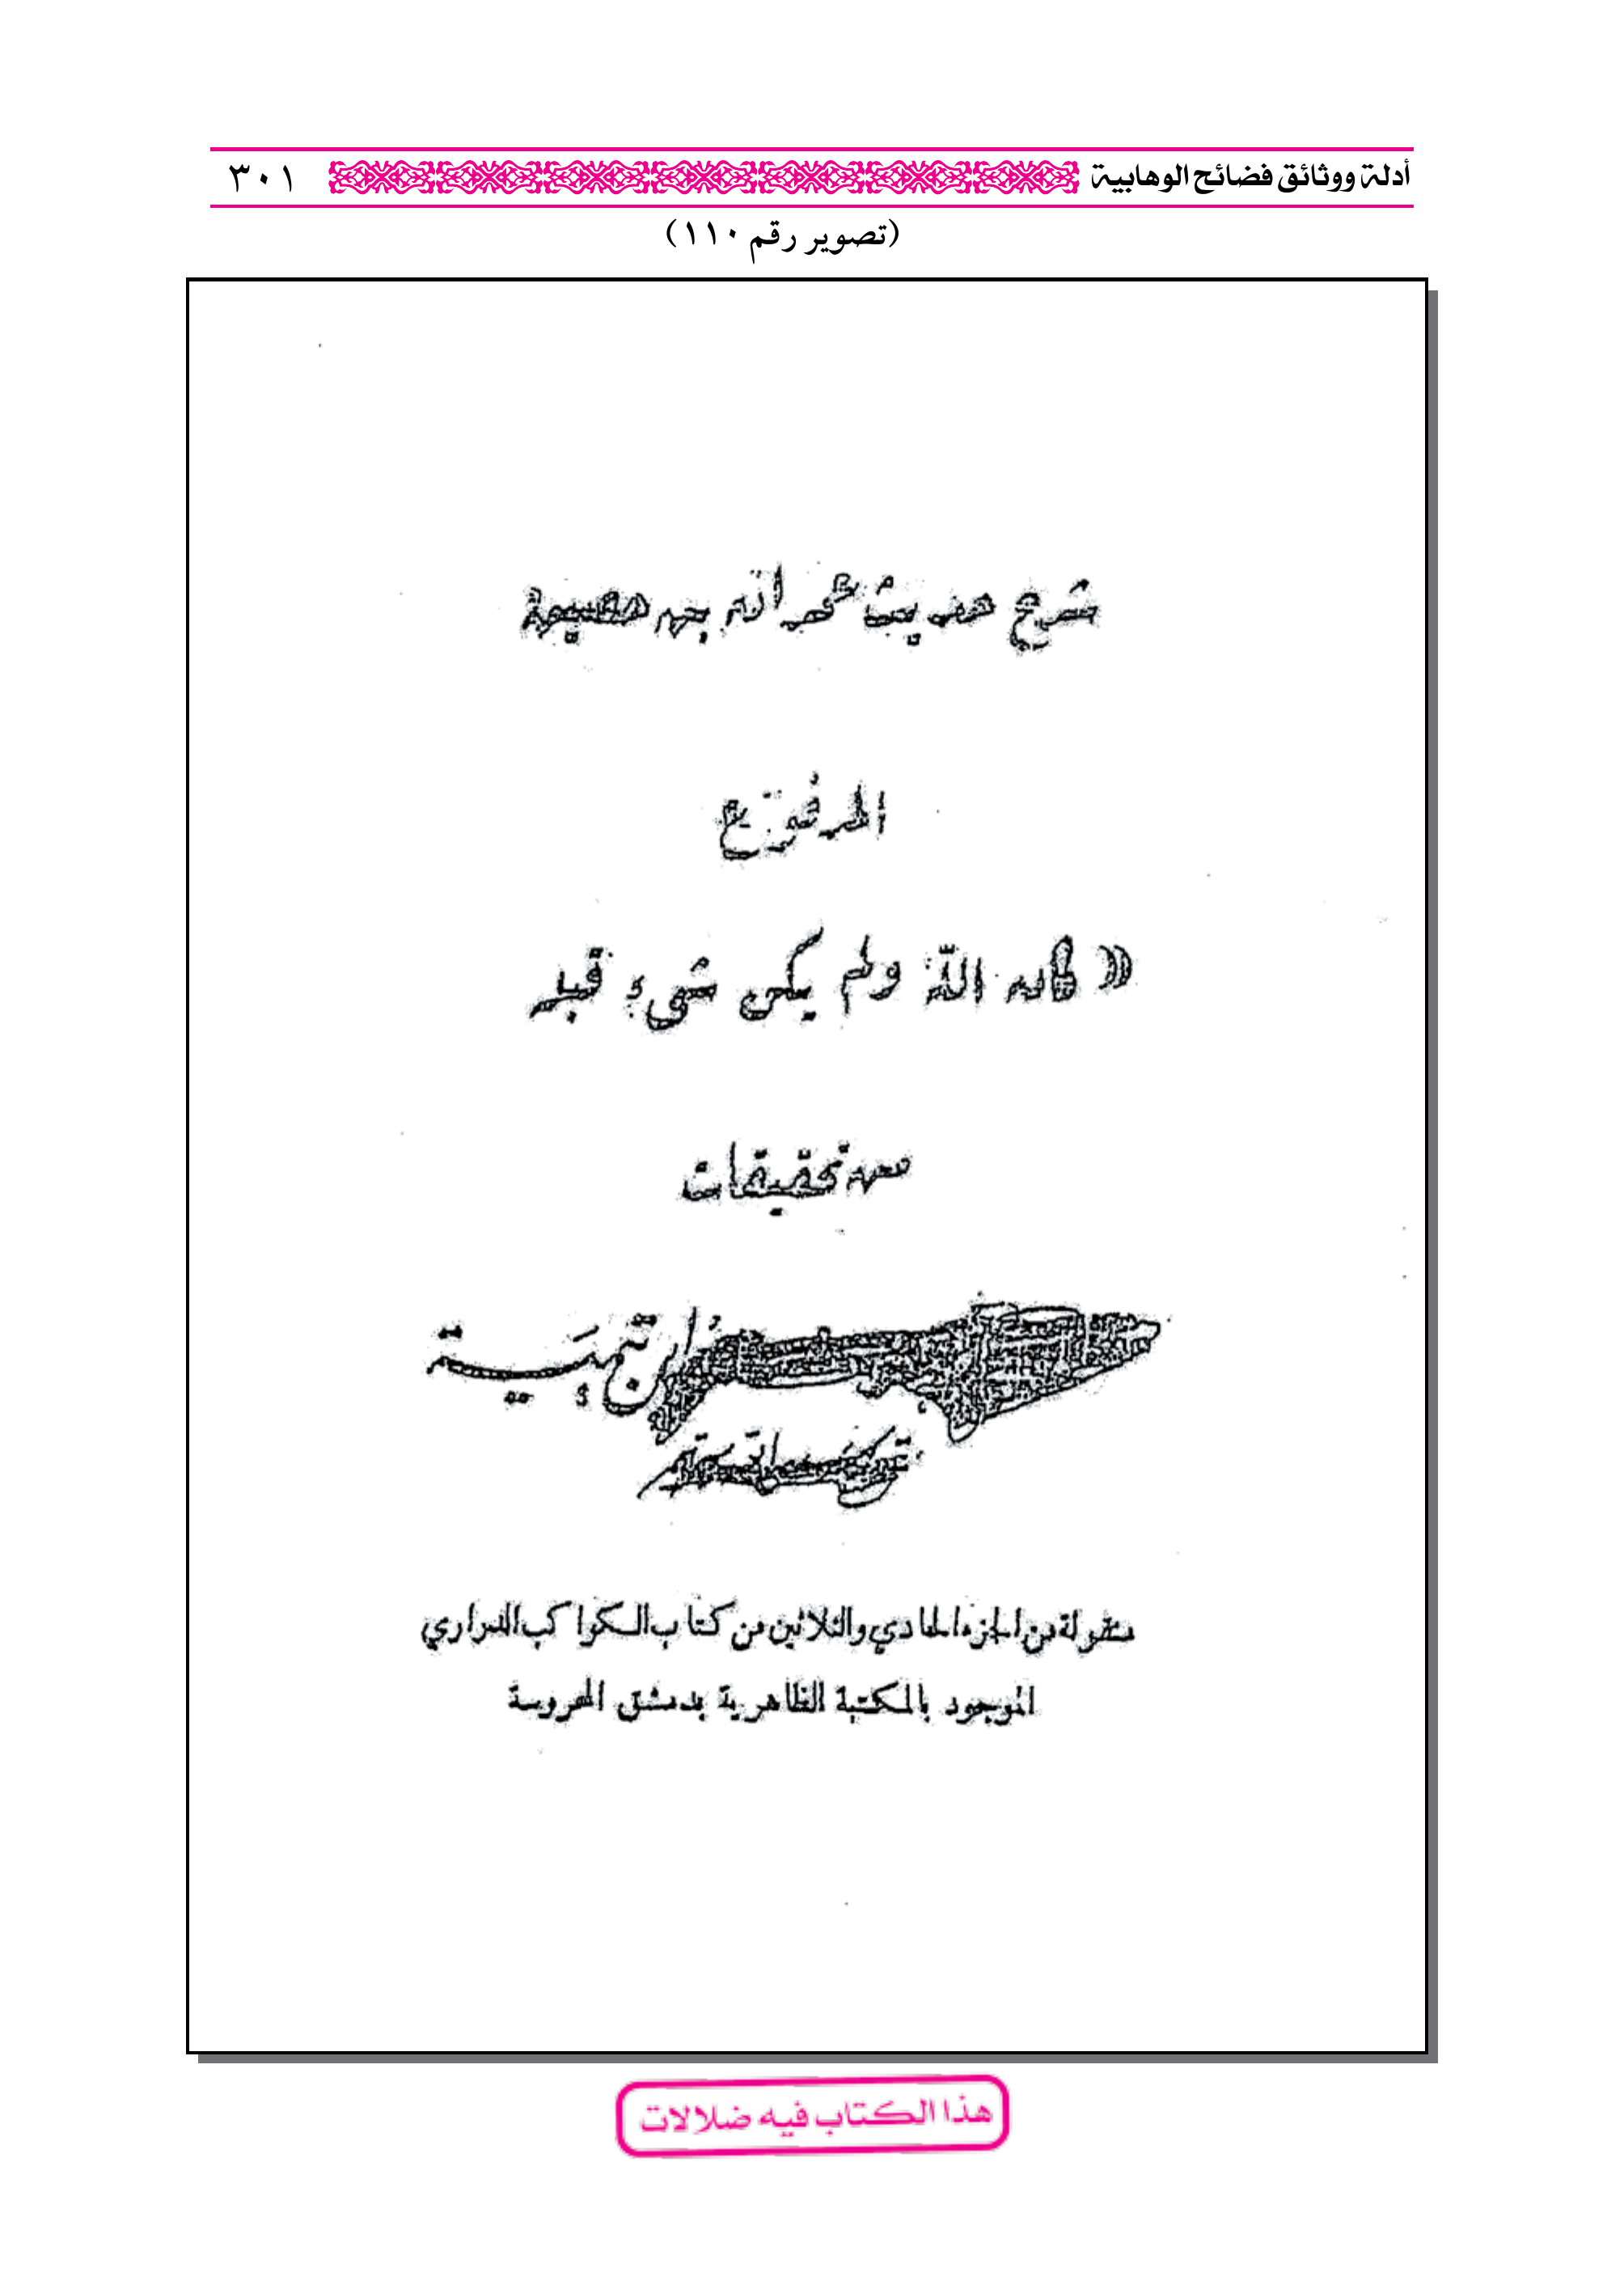 أدلة ووثائق فضائح الوهابية ٣٠١
(تصوير رقم ١١٠)
شرح حديث عمران بن حصين
المرفوع
« كان الله ولم يكن شيء قبله
من تحقيقات
ابن تيمية
منقولة من الجزء الحادي والثلاثين من كتاب الكواكب الدراري
الموجود بالمكتبة الظاهرية بدمشق المحروسة
هذا الكتاب فيه ضلالات